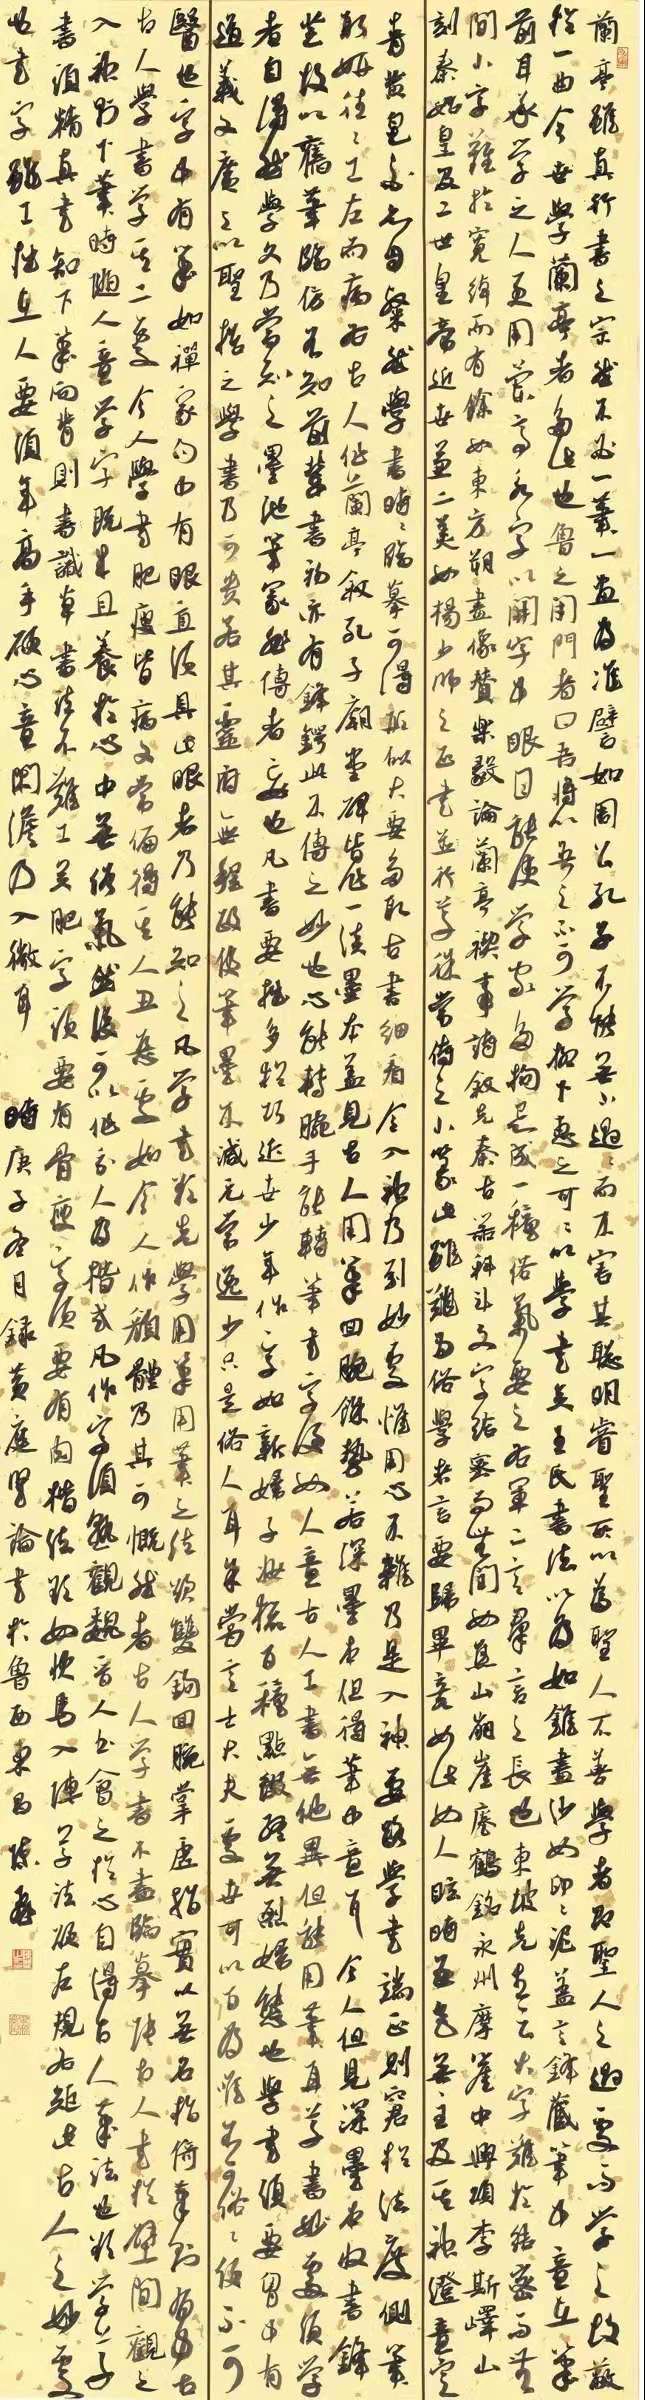 蘭亭雖真行書之宗然不必一筆一畫為準譬如周公孔子不能無小過過而不害其聰明睿聖所以為聖人不善學者即聖人之過處而學之故蔽
於一曲今世學蘭亭者多此也魯之閉門者曰吾將以吾之不可學柳下惠之可可以學書矣王氏書法以為如錐畫沙如印印泥蓋言鋒藏筆中意在筆
前耳承學之人更用蘭亭永字以開字中眼目能使學家多拘忌成一種俗氣要之右軍二言群言之長也東坡先生云大字難於結密而無
間小字難於寬綽而有餘如東方朔畫像贊樂毅論蘭亭禊事詩敘先秦古器科斗文字結密而無間如焦山崩崖瘞鶴銘永州摩崖中興頌李斯嶧山
刻秦始皇及二世皇帝近世兼二美如楊少師之正書並行草徐常侍之小篆此雖難為俗學者言要歸畢竟如此如人眩時五色無主及其神澄意定
青黃皂白亦自粲然學書時時臨摹可得形似大要多取古書細看令入神乃到妙處惟用心不雜乃是入神要路學書端正則窘於法度側筆
取妍往往工左而病右古人作蘭亭敘孔子廟堂碑皆作一淡墨本蓋見古人用筆回腕餘勢若深墨本但得筆中意耳今人但見深墨本收書鋒
芒故以舊筆臨仿不知前輩書初亦有鋒鍔此不傳之妙也心能轉腕手能轉筆書字便如人意古人工書無他異但能用筆耳草書妙處須學
者自得然學久乃當知之墨池筆冢非傳者妄也凡書要拙多於巧近世少年作字如新婦子妝梳百種點綴終無烈婦態也學書須要胸中有
道義又廣之以聖哲之學書乃可貴若其靈府無程政使筆墨不減元常逸少只是俗人耳余嘗言士大夫處世可以百為唯不可俗俗便不可
醫也字中有筆如禪家句中有眼直須具此眼者乃能知之凡學書欲先學用筆用筆之法欲雙鉤回腕掌虛指實以無名指倚筆則有力古
人學書學其二處今人學書肥瘦皆病又常偏得其人醜惡處如今人作顏體乃其可慨然者古人學書不盡臨摹張古人書於壁間觀之
入神則下筆時隨人意學字既成且養於心中無俗氣然後可以作示人為楷式凡作字須熟觀魏晉人書會之於心自得古人筆法也欲學草
書須精真書知下筆向背則書識草書法不難工矣肥字須要有骨瘦字須要有肉楷法欲如快馬入陣草法欲左規右矩此古人之妙處
也書字雖工拙在人要須年高手硬心意閑澹乃入微耳 時庚子冬月錄黃庭堅論書於魯西東昌